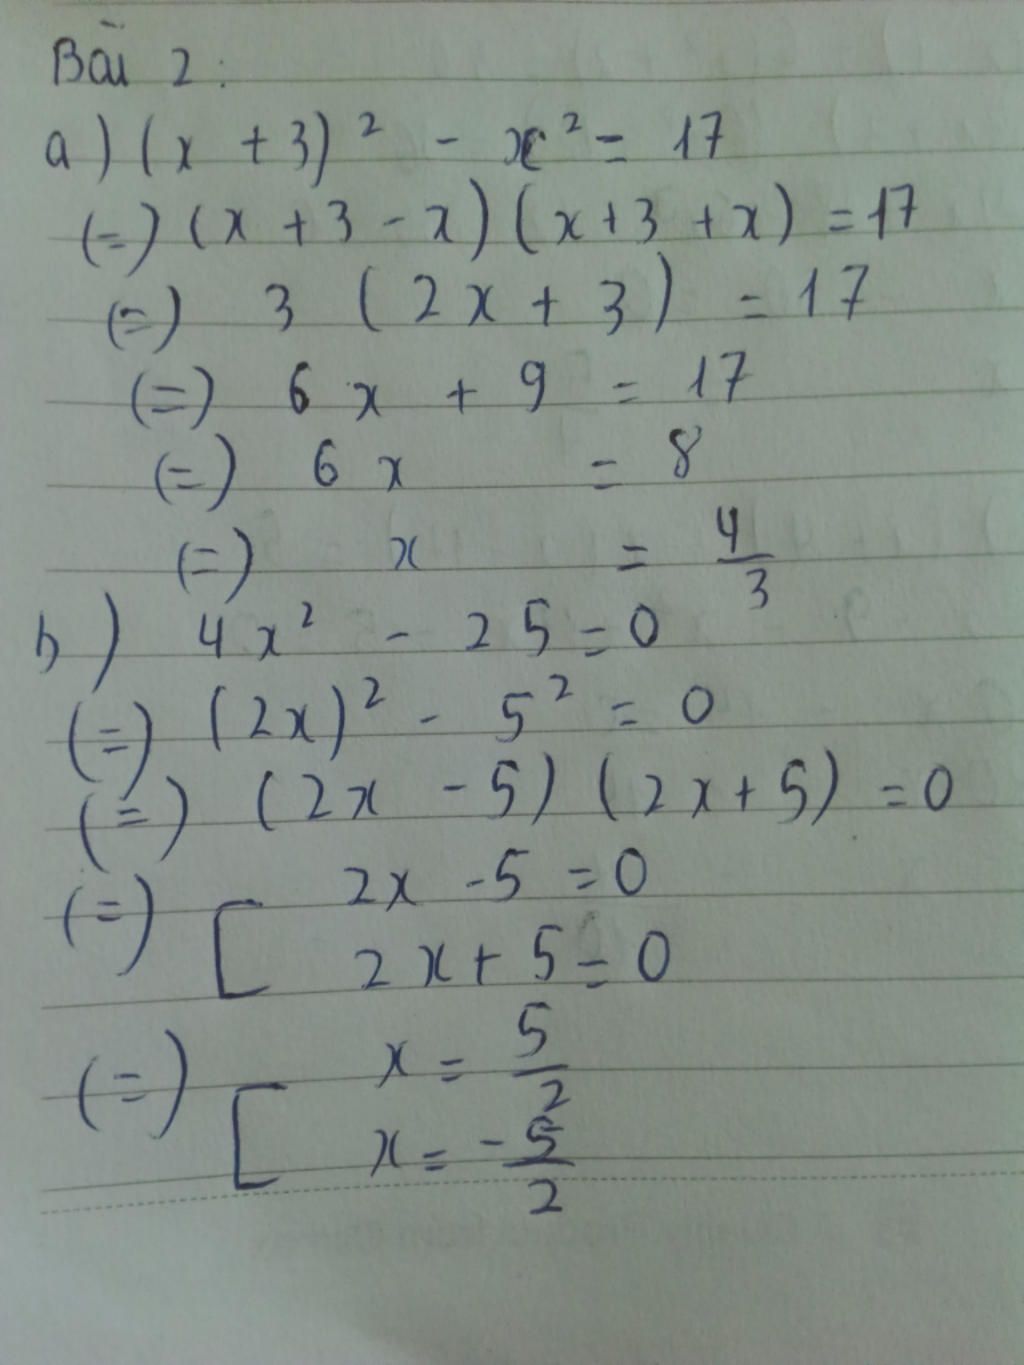 Bài 2:
a) (x + 3)² - x² = 17
(=) (x + 3 - x) (x + 3 + x) = 17
(=) 3 (2x + 3) = 17
(=) 6x + 9 = 17
(=) 6x = 8
(=) x = 4/3
b) 4x² - 25 = 0
(=) (2x)² - 5² = 0
(=) (2x - 5) (2x + 5) = 0
(=) [ 2x - 5 = 0
2x + 5 = 0
(=) [ x = 5/2
x = -5/2